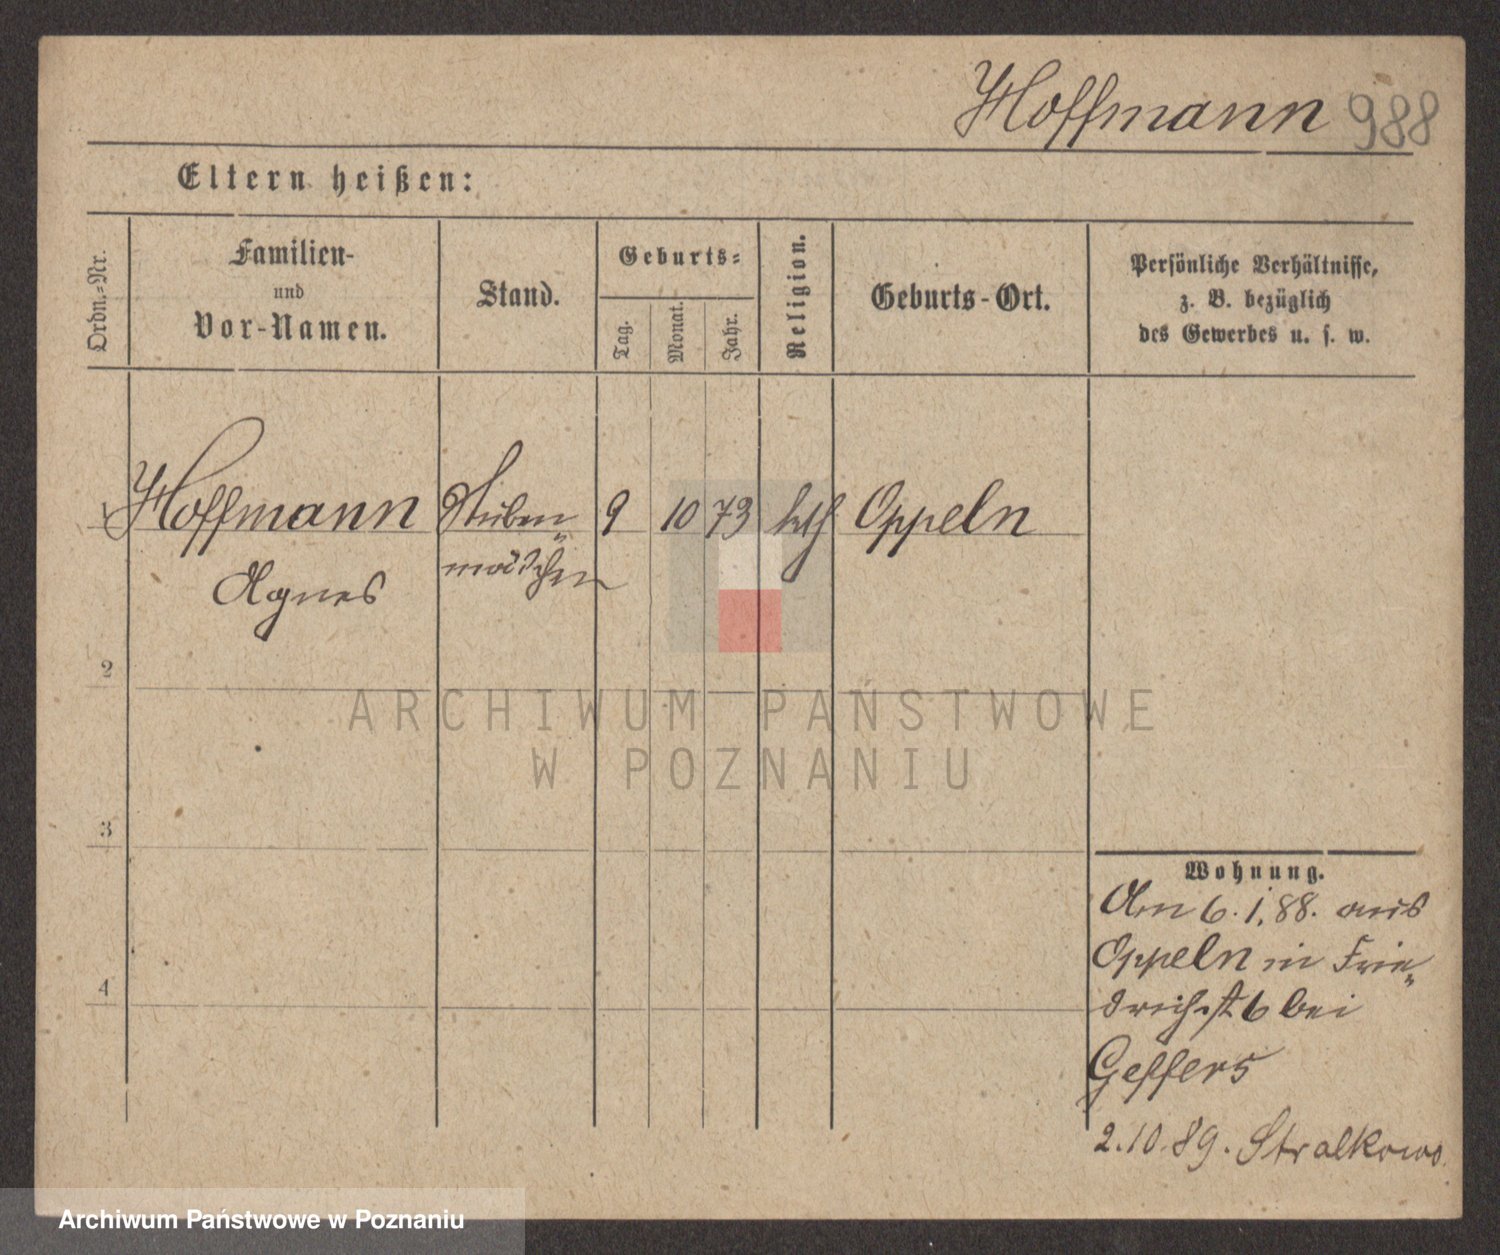 Hoffmann 988
Eltern heißen:
Ordn.-Nr.
Familien-
und
Vor-Namen.
Stand.
Geburts-
Tag.
Monat.
Jahr.
Religion.
Geburts-Ort.
Persönliche Verhältnisse,
z. B. bezüglich
des Gewerbes u. s. w.
1 Hoffmann Stuben 9 10 73 kth Oppeln
Agnes mädchen
2
3
4
Wohnung.
Am 6.1.88. aus
Oppeln in Frie
drichst 6 bei
Geffers
2.10.89. Stralkowo
ARCHIWUM PAŃSTWOWE
W POZNANIU
Archiwum Państwowe w Poznaniu